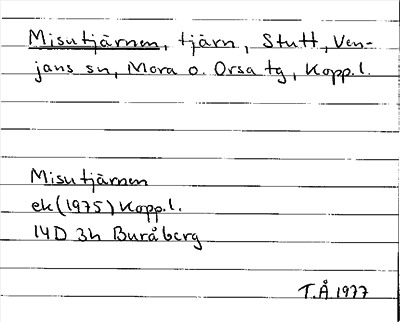 Misutjärnen, tjärn, Stutt, Ven-
jans sn, Mora o. Orsa tg, Kopp.l.
Misutjärnen
ek (1975) Kopp.l.
14D 3h Buråberg
T.Å 1977